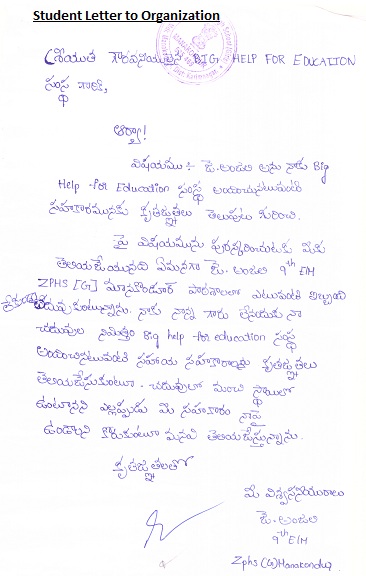 Student Letter to Organization
శ్రీయుత గౌరవనీయులైన BIG HELP FOR EDUCATION
సంస్థ గారికి,
ఆర్యా!
విషయము :- జె. అంజలి అను నాకు Big
Help for Education సంస్థ అందించినటువంటి
సహకారమునకు కృతజ్ఞతలు తెలుపుట గురించి.
పై విషయమును పురస్కరించుకు మీకు
తెలియజేయునది ఏమనగా జె. అంజలి 9th E/M
ZPHS [G] మానకొండూర్ పాఠశాలలో ఎటువంటి ఇబ్బంది
లేకుండా చదువుకుంటున్నాను. నాకు నాన్న గారు లేనందుకు నా
చదువుల నిమిత్తం Big help for education సంస్థ
అందించినటువంటి సహాయ సహకారాలకు కృతజ్ఞతలు
తెలియజేసుకుంటూ. చదువులో మంచి స్థాయిలో
ఉంటానని ఎల్లప్పుడు మీ సహకారం నాపై
ఉండాలని కోరుకుంటూ మనవి తెలియజేస్తున్నాను.
కృతజ్ఞతలతో
మీ విశ్వసనీయురాలు
జె. అంజలి
9th E/M
Zphs (G) Manakondur